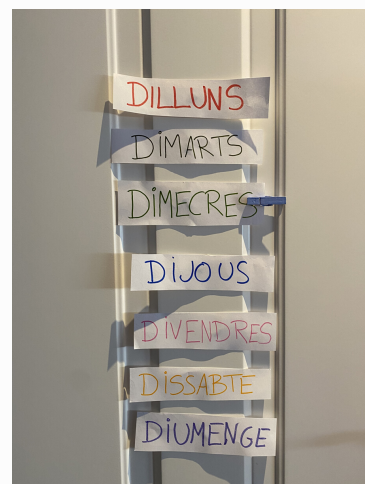 DILLUNS
DiMARTS
DiMECRES
DiJOUS
DIVENDRES
DiSSABTE
DiUMENGE